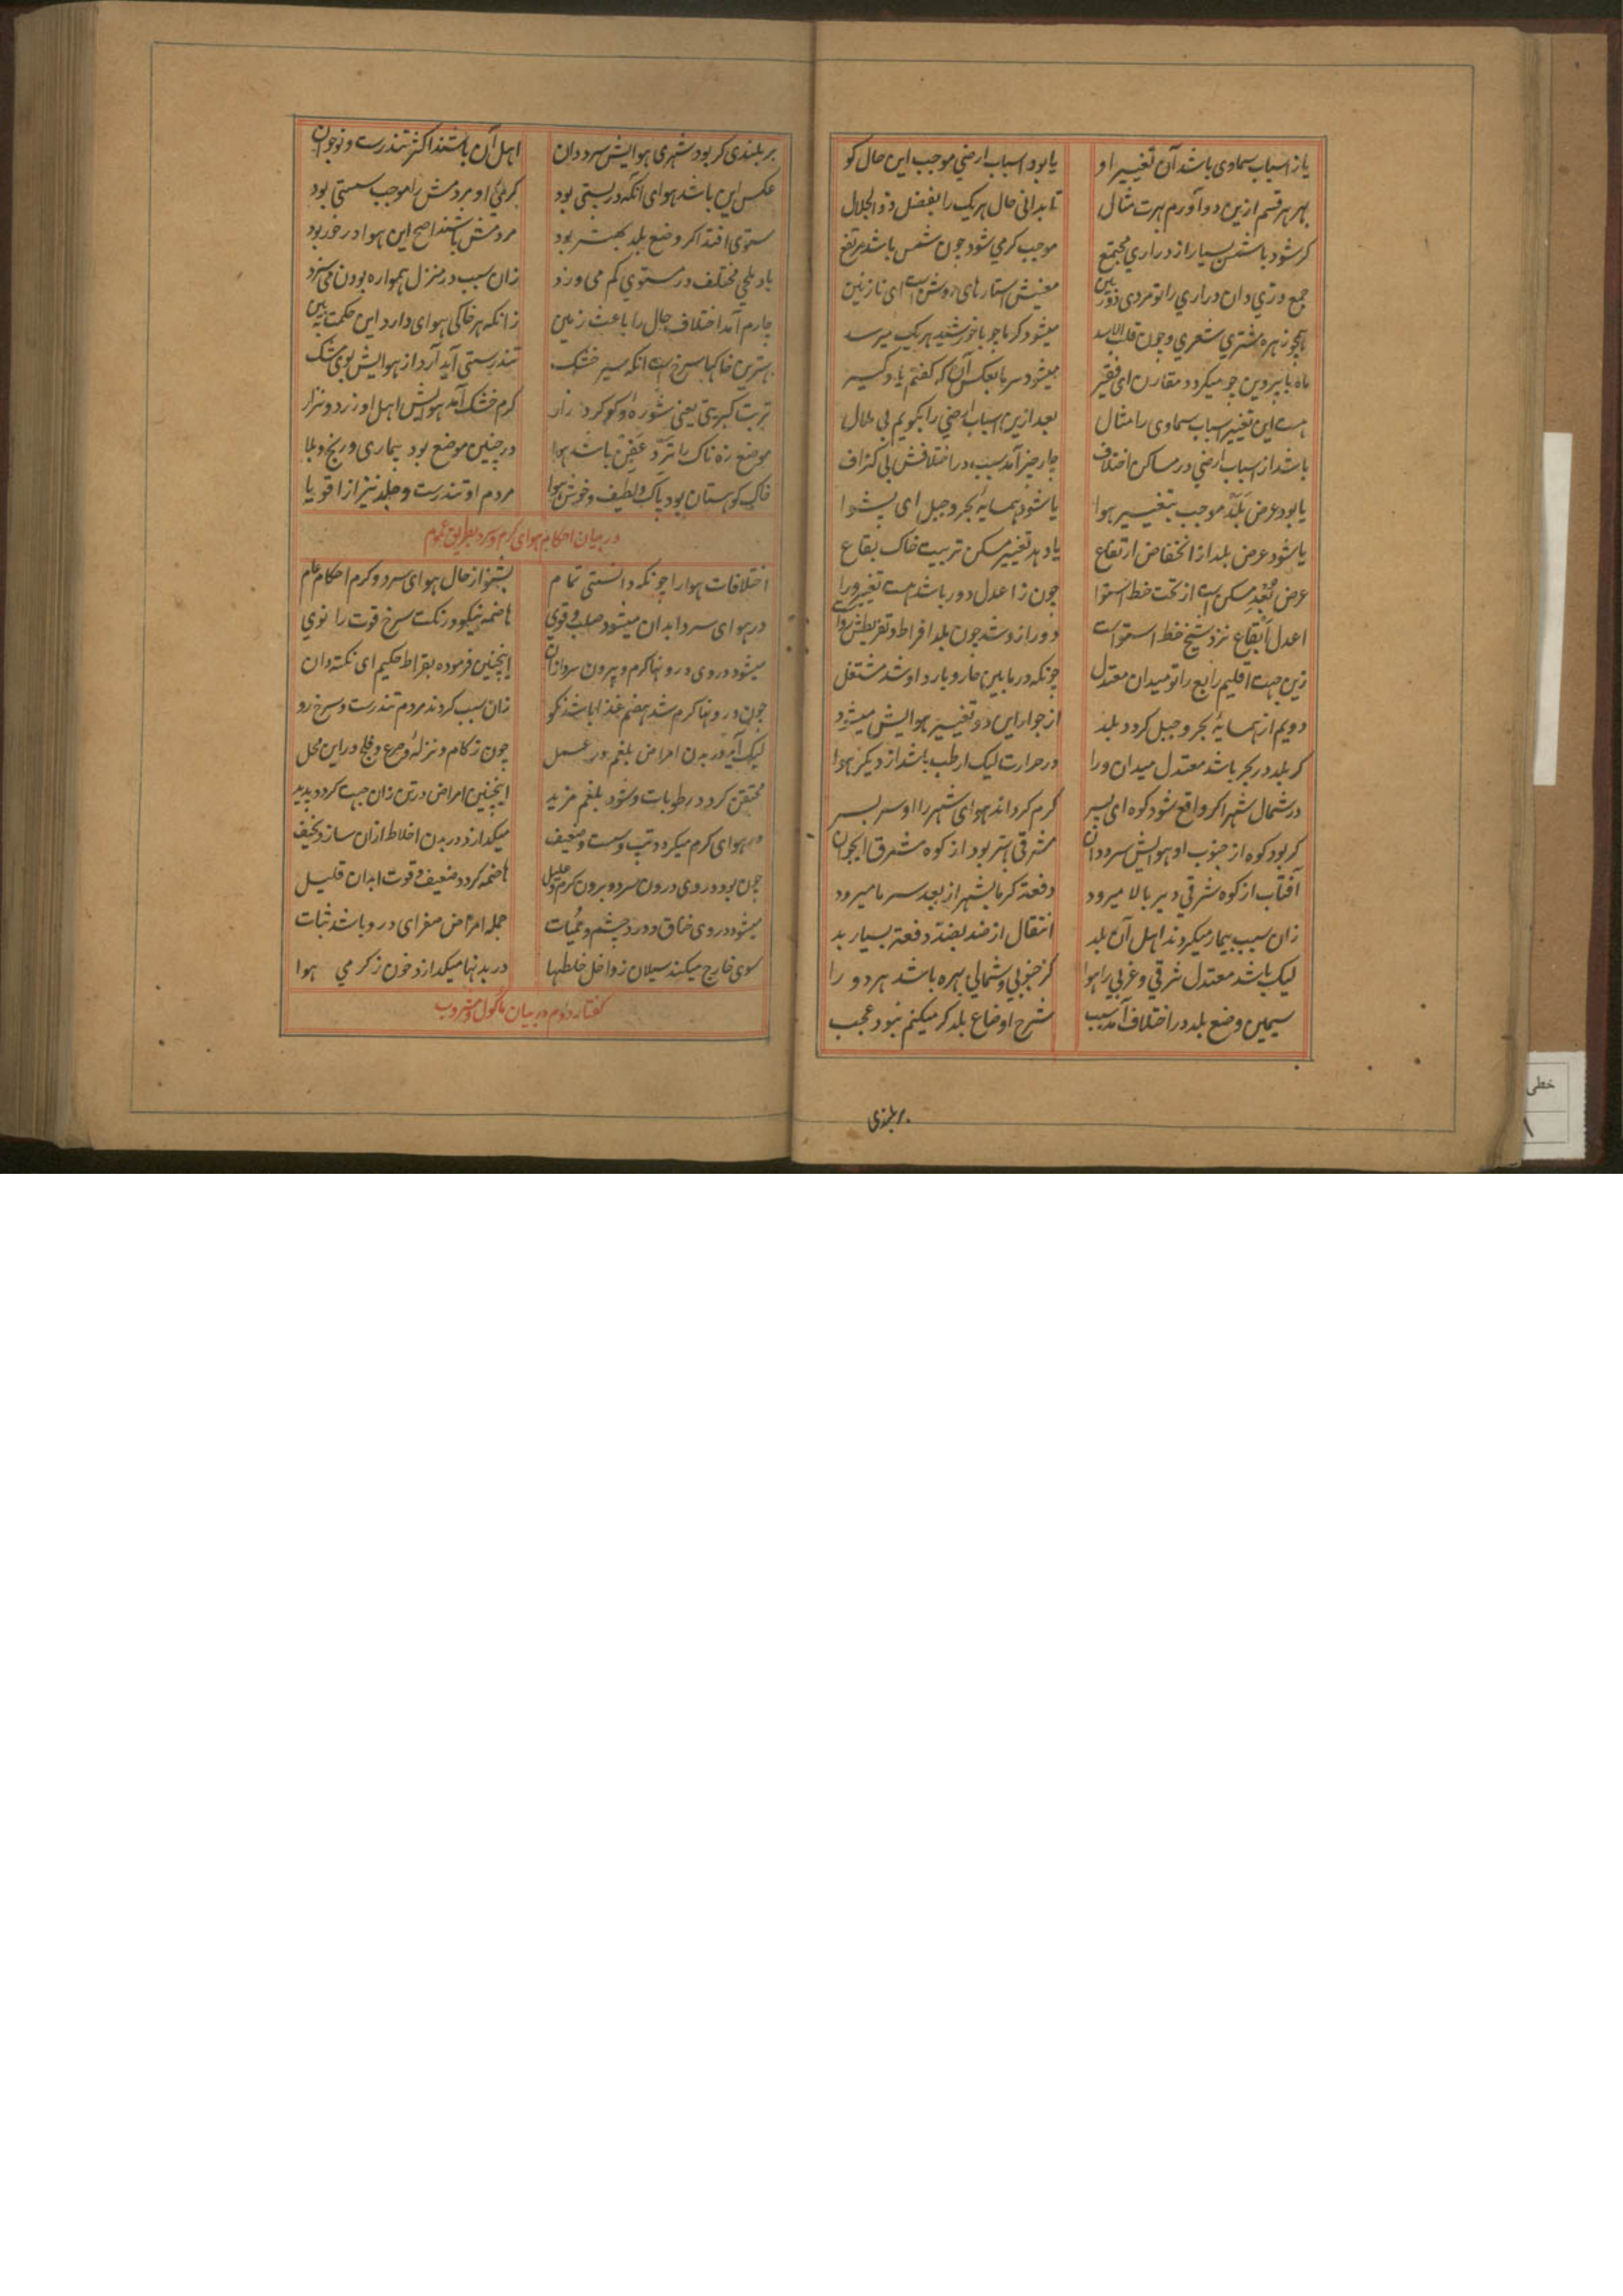 یا ز اسباب سماوی باشد آن تغییر او یا بود اسباب ارضی موجب این حال کو
بهر هر قسم ازین دو آورم بهرت مثال تا بدانی حال هر یک را بفضل ذو الجلال
کر شود با شمس بسیار از دراری مجتمع موجب کرمی شود چون شمس باشد مرتفع
جمع دری دان دراری را تو مردی دوربین معنیش استارهای روشن است ای نازنین
همچو زهره مشتری شعری و چون قلب الاسد میشود کرما چو با خورشید هر یک میرسد
ماه با پروین چو میکردد مقارن ای فقیر میشود سرما بعکس آن که کفتم یاد کیر
هست این تغییر اسباب سماوی را مثال بعد ازین اسباب ارضی را بکویم بی ملال
باشد از اسباب ارضی در مساکن اختلاف چار چیز آمد سبب در اختلافش بی کزاف
یا بود عرض بلد موجب بتغییر هوا یا شود همسایهٔ بحر و جبل ای پیشوا
یا شود عرض بلد از انخفاض ارتفاع یا دهد تغییر مسکن تربیت خاک بقاع
عرض بعد مسکن است از تحت خط استوا چون ز اعدل دور باشد هست تغییر ورا
اعدل البقاع نزد شیخ خط استواست دور ازو شد چون بلد افراط و تفریطش رواست
زین جهت اقلیم رابع را تو میدان معتدل چونکه در مابین حار و بارد او شد مشتغل
دویم از همسایهٔ بحر و جبل کردد بلد از جوار این دو تغییر هوایش میشود
کر بلد در بحر باشد معتدل میدان ورا در حرارت لیک ارطب باشد از دیکر هوا
در شمال شهر اکر واقع شود کوه ای پسر کرم کرداند هوای شهر را او سر بسر
کر بود کوه از جنوب او هوایش سرد دان مشرقی بهتر بود از کوه مشرق ایجوان
آفتاب از کوه شرقی دیر بالا میرود دفعة کرما بشهر از بعد سرما میرود
زان سبب بیمار میکردند اهل آن بلد انتقال از ضد بضد دفعة بسیار بد
لیک باشد معتدل شرقی و غربی را هوا کز جنوبی و شمالی بهره باشد هر دو را
سیمین وضع بلد در اختلاف آمد سبب شرح اوضاع بلد کر میکنم نبود عجب
بر بلندی
بر بلندی کر بود شهری هوایش سرد دان اهل آن باشند اکثر تندرست و نوجوان
عکس این باشد هوای آنکه در پستی بود کرمی او مردمش را موجب سستی بود
مستوی افتد اکر وضع بلد بهتر بود مردمش باشند اصح این هوا در خور بود
باد های مختلف در مستوی کم می وزد زان سبب در منزل هموار بودن می سزد
چارم آمد اختلاف حال را باعث زمین زانکه هر خاکی هوای دارد این حکمت ببین
بهترین خاکها سرخ است آنکه سیر خشک تندرستی آید آرد از هوایش بوی مشک
تربت کبریتی یعنی شوره و کوکرد زار کرم خشک آمد هوایش اهل او زرد و نزار
موضع زه ناک را تر و عفن باشد هوا در چنین موضع بود بیماری و رنج و بلا
خاک کوهستان بود پاک و لطیف و خوش هوا مردم او تندرست و جلد نیز از اقویا
در بیان احکام هوای کرم و سرد بطریق عموم
اختلافات هوا را چونکه دانستی تمام بشنو از حال هوای سرد و کرم احکام عام
در هوای سرد ابدان میشود صلب و قوی هاضمه نیکو و رنکت سرخ قوت را نوی
میشود در وی درونها کرم و بیرون سرد ازان اینچنین فرموده بقراط حکیم ای نکته دان
چون درونها کرم شد هضم غذا باشد نکو زان سبب کردند مردم تندرست و سرخ رو
لیک آید در بدن امراض بلغم در عمل چون زکام و نزله و صرع و فلج در این محل
محتقن کردد رطوبات و شود بلغم مزید اینچنین امراض در تن زان جهت کردد پدید
در هوای کرم میکردد تب و سست و ضعیف میکدازد در بدن اخلاط ازان سازد نحیف
چون بود در وی درون سرد و برون کرم و علیل هاضمه کردد ضعیف و قوت ابدان قلیل
میشود در وی خناق و درد چشم و حمیات جمله امراض صفرای درو باشد ثبات
سوی خارج میکند سیلان ز داخل خلطها در بدنها میکدازد خون ز کرمی هوا
کفتار دوم در بیان ماکول و مشروب
خطی